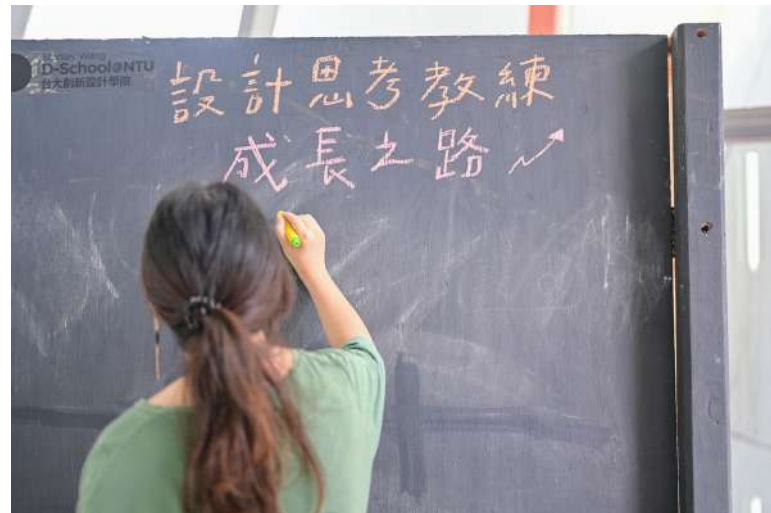 D-School@NTU
台大創新設計學院
設計思考教練
成長之路